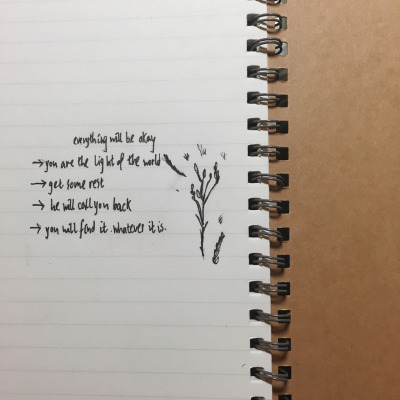 everything will be okay
→ you are the light of the world
→ get some rest
→ he will call you back
→ you will find it. whatever it is.